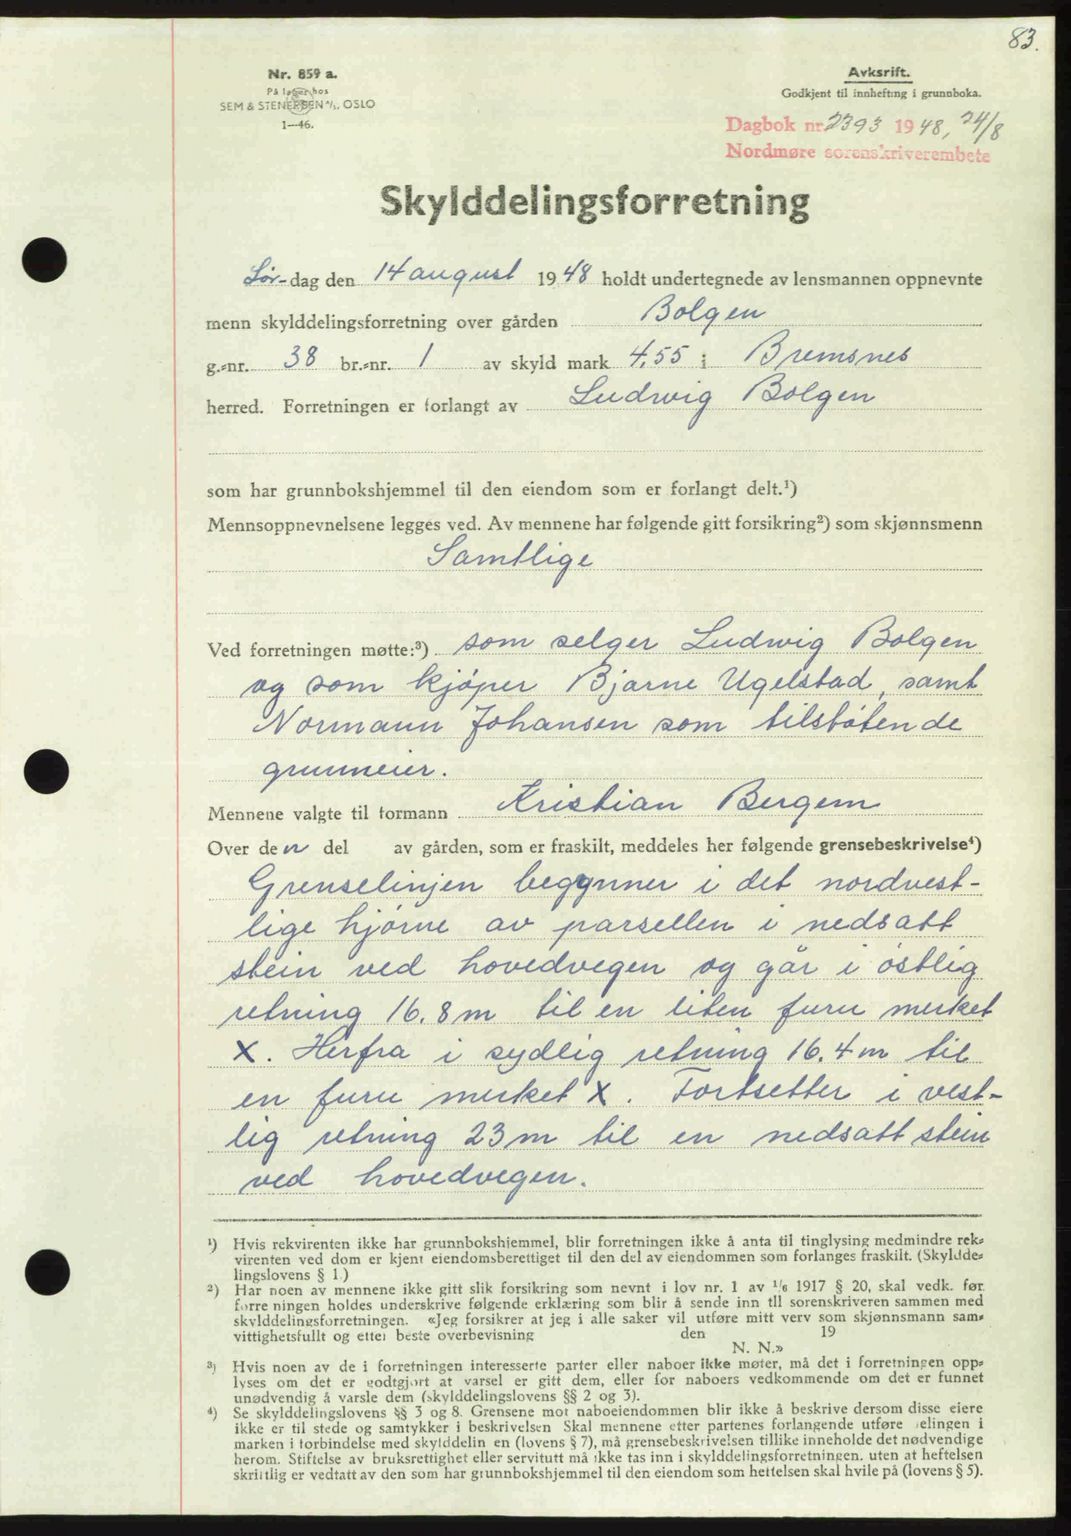 83.
Nr. 859 a.
På lager hos
SEM & STENERSEN A/S, OSLO
1—46.
Avksrift.
Godkjent til innhefting i grunnboka.
Dagbok nr. 2393 1948, 24/8
Nordmøre sorenskriverembete
Skylddelingsforretning
Lør-dag den 14 august 1948 holdt undertegnede av lensmannen oppnevnte
menn skylddelingsforretning over gården Bolgen
g.-nr. 38 br.-nr. 1 av skyld mark 4,55 i Bremsnes
herred. Forretningen er forlangt av Ludwig Bolgen
som har grunnbokshjemmel til den eiendom som er forlangt delt.¹)
Mennsoppnevnelsene legges ved. Av mennene har følgende gitt forsikring²) som skjønnsmenn
Samtlige
Ved forretningen møtte:³) som selger Ludwig Bolgen
og som kjøper Bjarne Ugelstad, samt
Normann Johansen som tilstøtende
grunneier.
Mennene valgte til formann Kristian Bergem
Over den del av gården, som er fraskilt, meddeles her følgende grensebeskrivelse⁴)
Grenselinjen begynner i det nordvest-
lige hjørne av parsellen i nedsatt
stein ved hovedvegen og går i østlig
retning 16.8 m til en liten furu merket
X. Herfra i sydlig retning 16.4 m til
en furu merket X. Fortsetter i vest-
lig retning 23 m til en nedsatt stein
ved hovedvegen.
¹) Hvis rekvirenten ikke har grunnbokshjemmel, blir forretningen ikke å anta til tinglysing medmindre rek-
virenten ved dom er kjent eiendomsberettiget til den del av eiendommen som forlanges fraskilt. (Skyldde-
lingslovens § 1.)
²) Har noen av mennene ikke gitt slik forsikring som nevnt i lov nr. 1 av 1/6 1917 § 20, skal vedk. før
forretningen holdes underskrive følgende erklæring som blir å sende inn til sorenskriveren sammen med
skylddelingsforretningen. «Jeg forsikrer at jeg i alle saker vil utføre mitt verv som skjønnsmann sam-
vittighetsfullt og etter beste overbevisning den 19
N. N.»
³) Hvis noen av de i forretningen interesserte parter eller naboer ikke møter, må det i forretningen opp-
lyses om det er godtgjort at varsel er gitt dem, eller for naboers vedkommende om det er funnet
unødvendig å varsle dem (skylddelingslovens §§ 2 og 3).
⁴) Se skylddelingslovens §§ 3 og 8. Grensene mot naboeiendommen blir ikke å beskrive dersom disse eiere
ikke er til stede og samtykker i beskrivelsen Skal mennene etter partenes forlangende utføre delingen i
marken i forbindelse med skylddelingen (lovens § 7), må grensebeskrivelsen tillike inneholde det nødvendige
herom. Stiftelse av bruksrettighet eller servitutt må ikke tas inn i skylddelingsforretningen. uten at heftelsen
skriftlig er vedtatt av den som har grunnbokshjemmel til den eiendom som heftelsen skal hvile på (lovens § 5).